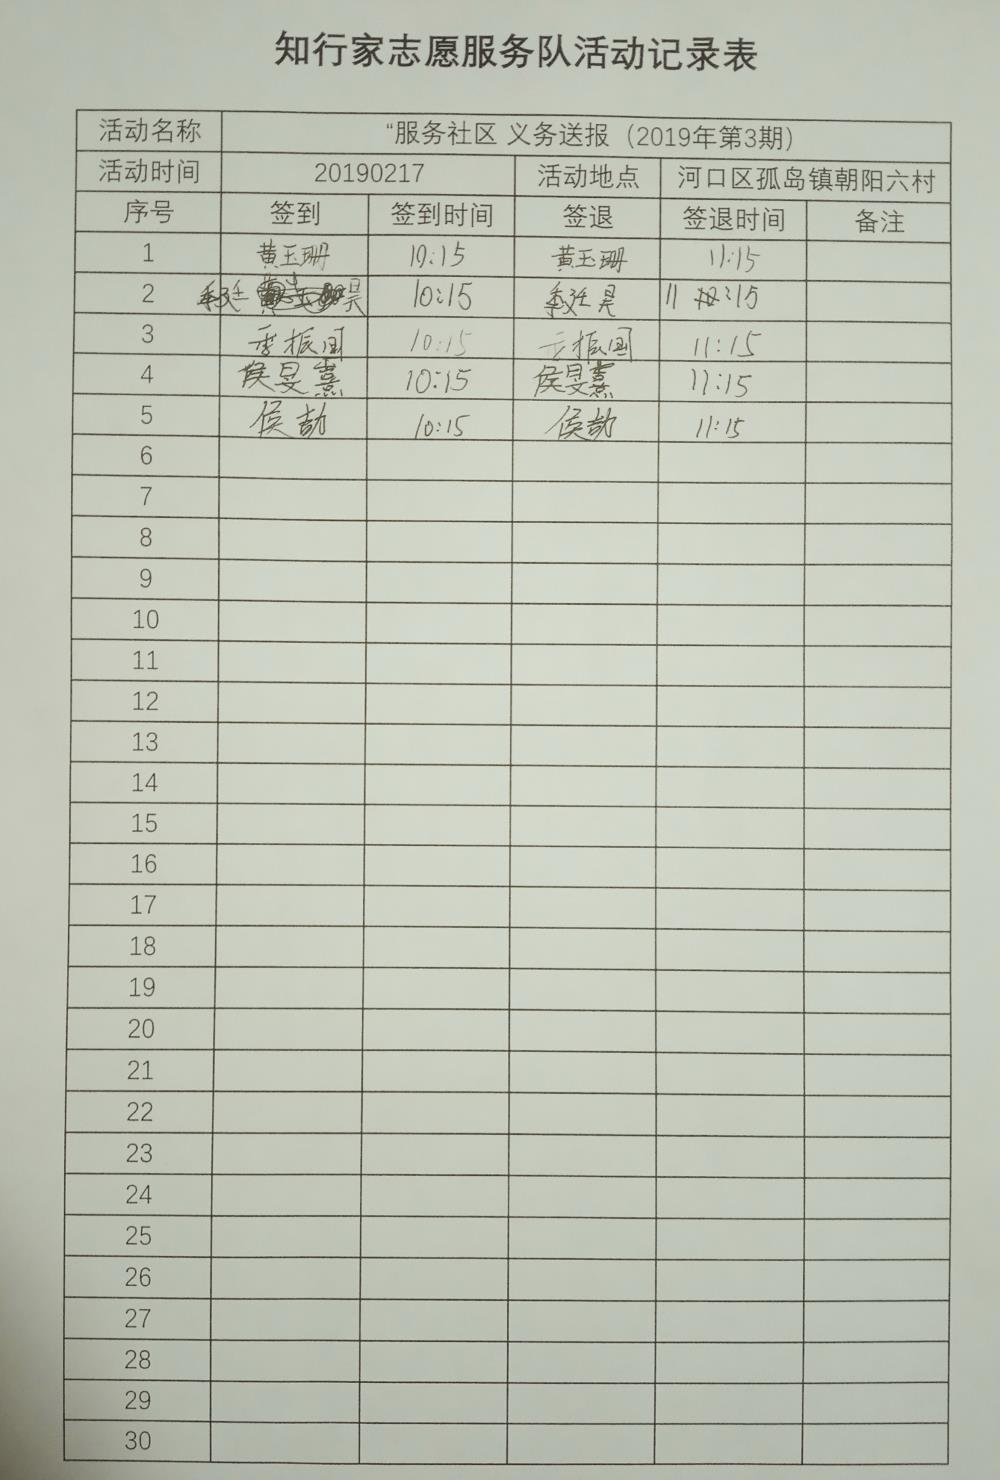 知行家志愿服务队活动记录表
活动名称 “服务社区 义务送报（2019年第3期）
活动时间 20190217 活动地点 河口区孤岛镇朝阳六村
序号 签到 签到时间 签退 签退时间 备注
1 黄玉珊 10:15 黄玉珊 11:15
2 廷昊 10:15 廷昊 11:15
3 振国 10:15 振国 11:15
4 侯旻熹 10:15 侯旻熹 11:15
5 侯劼 10:15 侯劼 11:15
6
7
8
9
10
11
12
13
14
15
16
17
18
19
20
21
22
23
24
25
26
27
28
29
30